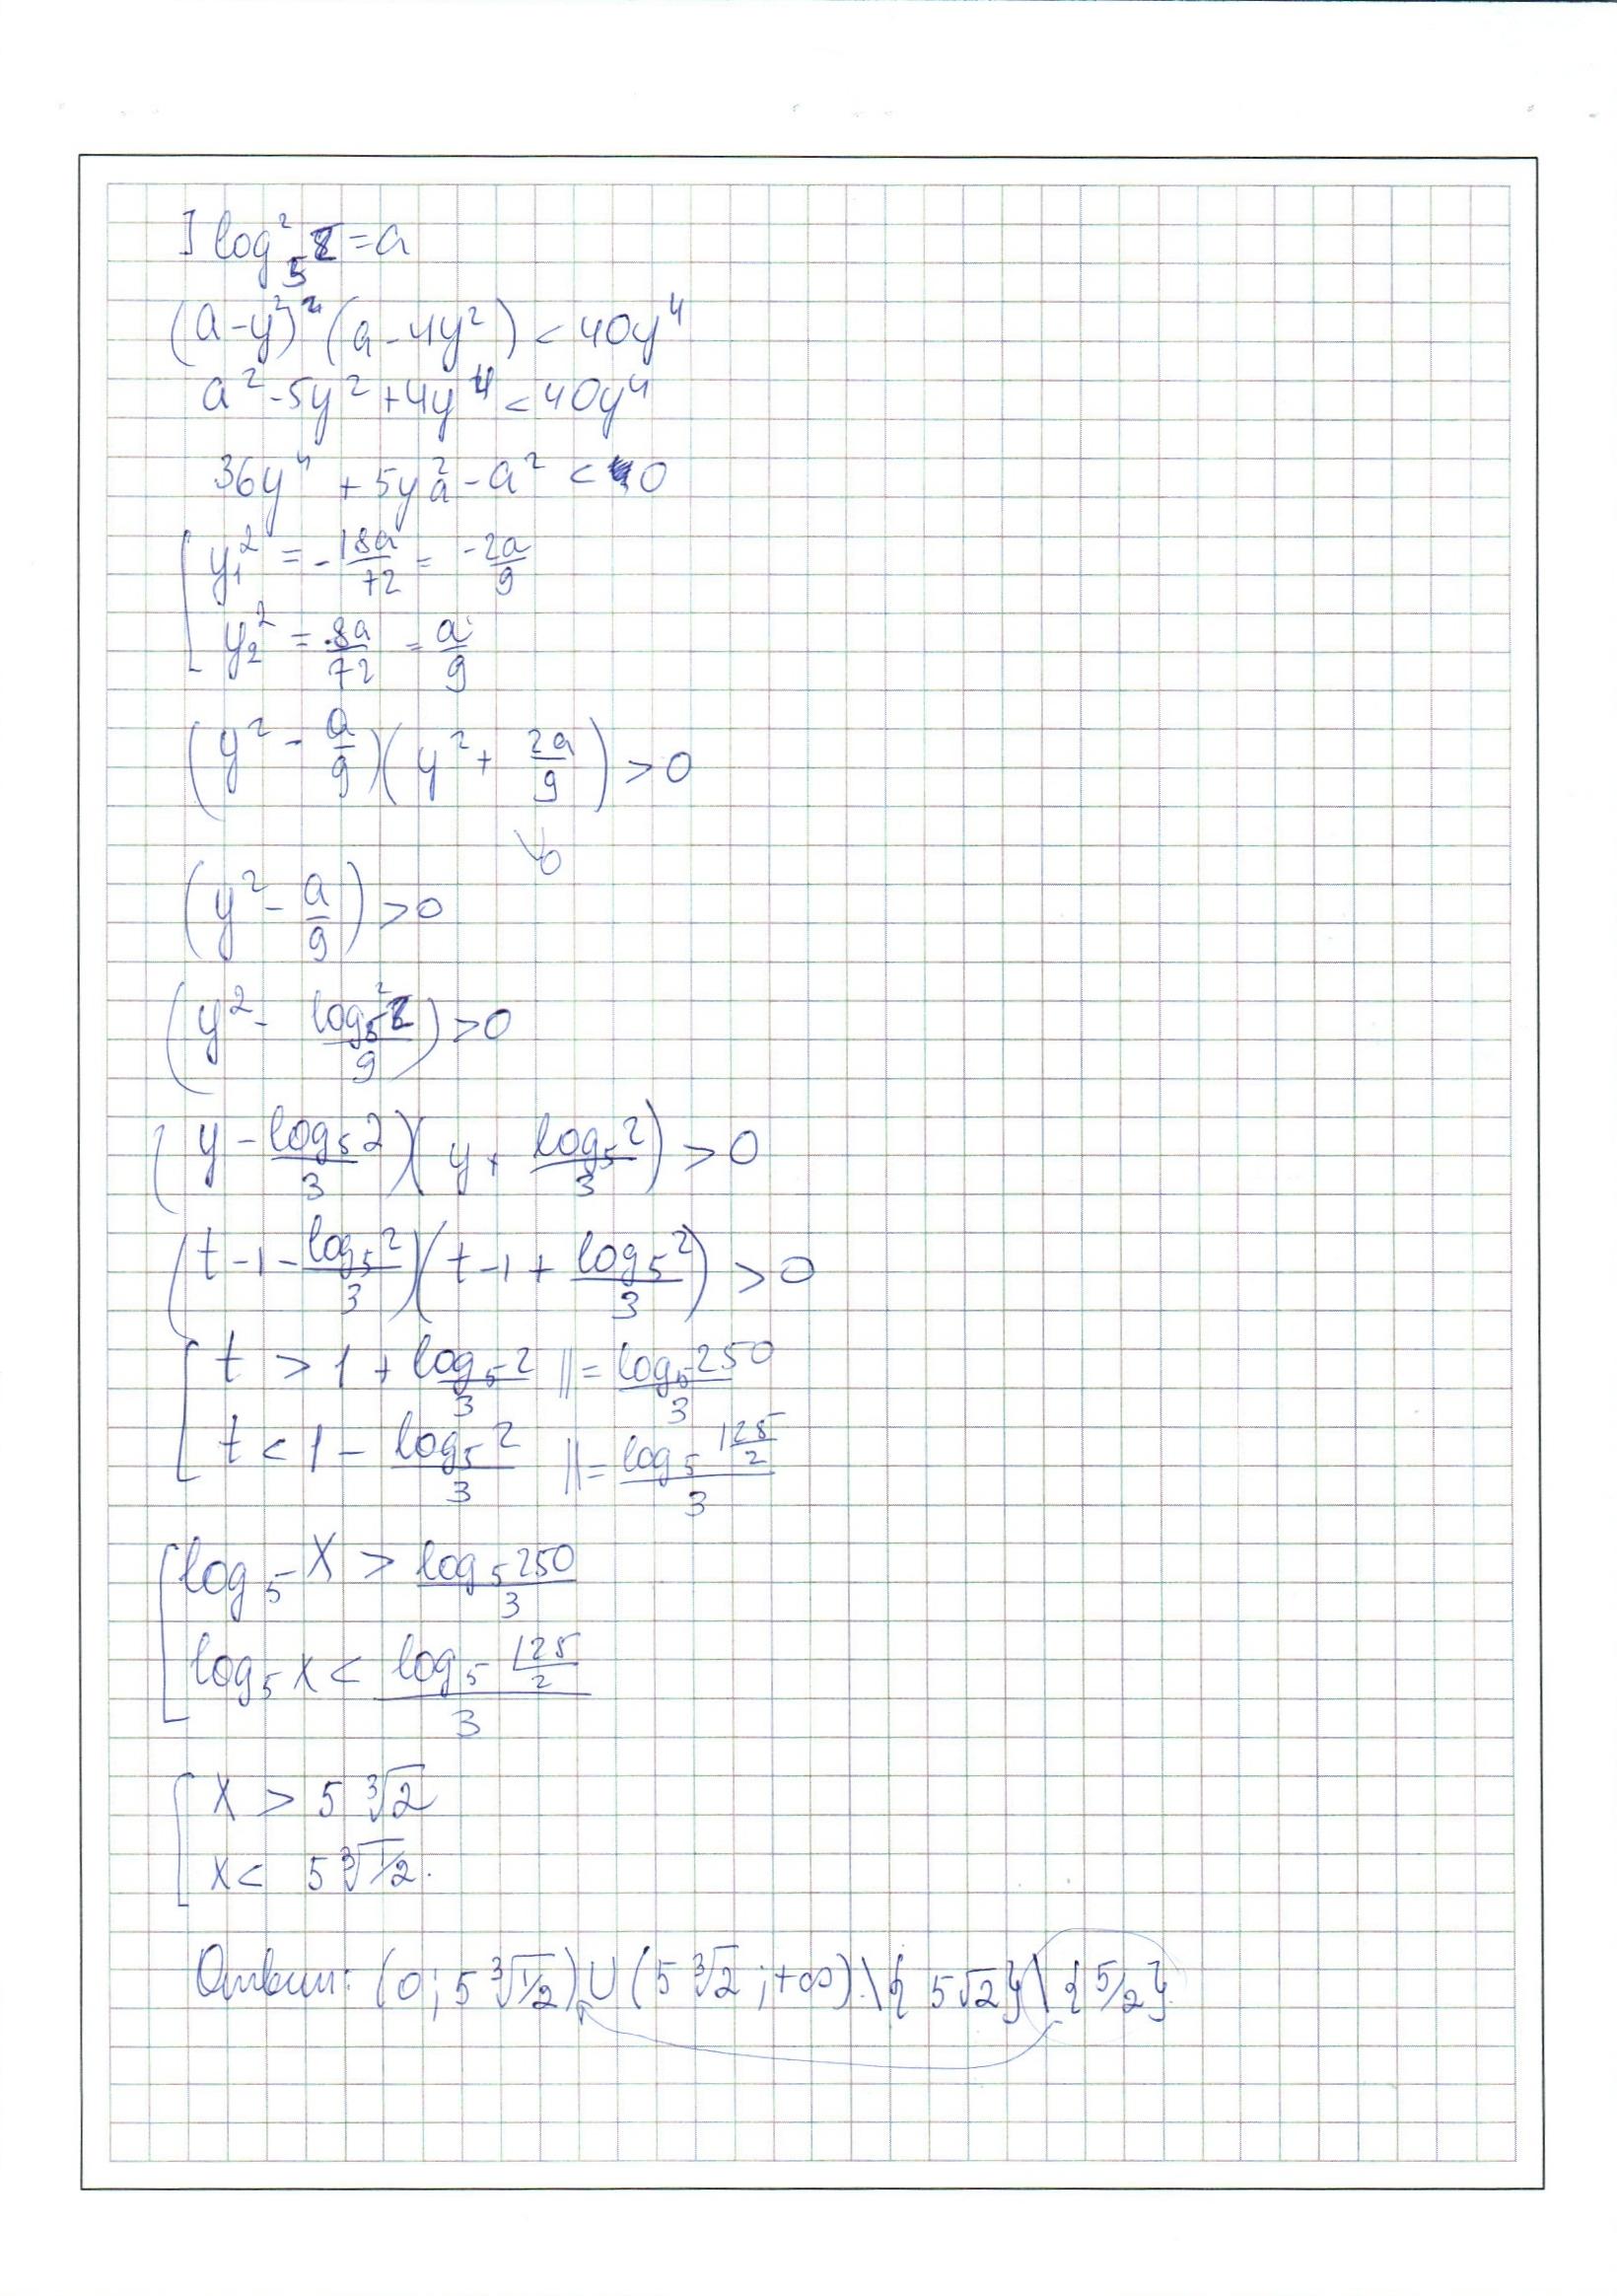 ] log²₅2 = a
(a - y²)² (a - 4y²) < 40y⁴
a² - 5y² + 4y⁴ < 40y⁴
36y⁴ + 5y²a - a² < 0
[ y₁² = - 18a/72 = -2a/9
y₂² = 8a/72 = a/9
(y² - a/9)(y² + 2a/9) > 0
(y² - a/9) > 0
(y² - log₅²2/9) > 0
(y - log₅2/3)(y + log₅2/3) > 0
(t - 1 - log₅2/3)(t - 1 + log₅2/3) > 0
[ t > 1 + log₅2/3 || = log₅250/3
t < 1 - log₅2/3 || = log₅ 125/2 /3
[ log₅x > log₅250/3
log₅x < log₅ 125/2 /3
[ x > 5∛2
x < 5∛1/2.
Ответ: (0; 5∛1/2) ∪ (5∛2; +∞) \ { 5√2 } \ { 5/2 }